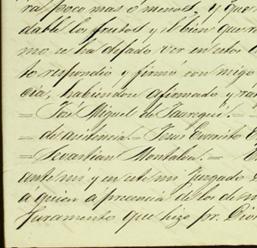 ra poco mas o menos, y que
dable los frutos y el bien que
mo se ha dejado ver en estos
to respondió y firmó con migo
cia, habiendose afirmado y ra
= José Miguel de Jauregui. =
de asistencia. = José
= Sevastian Montalvo. =
ante mi y en este mi Juzgado
á quien á presencia de los de mi
Juramento que hizo pr. Dios